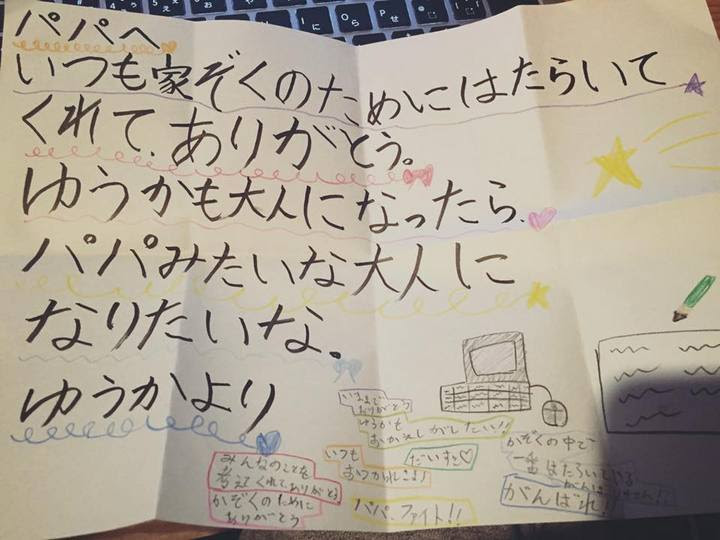 パパへ
いつも家ぞくのためにはたらいて
くれて、ありがとう。
ゆうかも大人になったら、
パパみたいな大人に
なりたいな。
ゆうかより
いままで
ありがとう
ゆうかも
おかえしがしたい!!
みんなのことを
考えてくれてありがとう
かぞくのために
ありがとう
いつも
おつかれさま!
だいすき♡
パパ、ファイト!!
かぞくの中で
一番はたらいている
がんばれ!